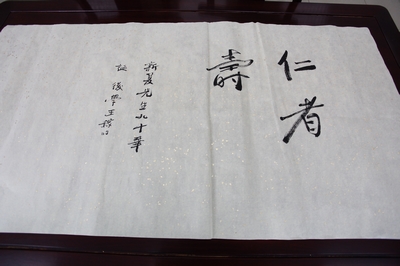 仁者
壽
新夏先生九十華
誕 後學王